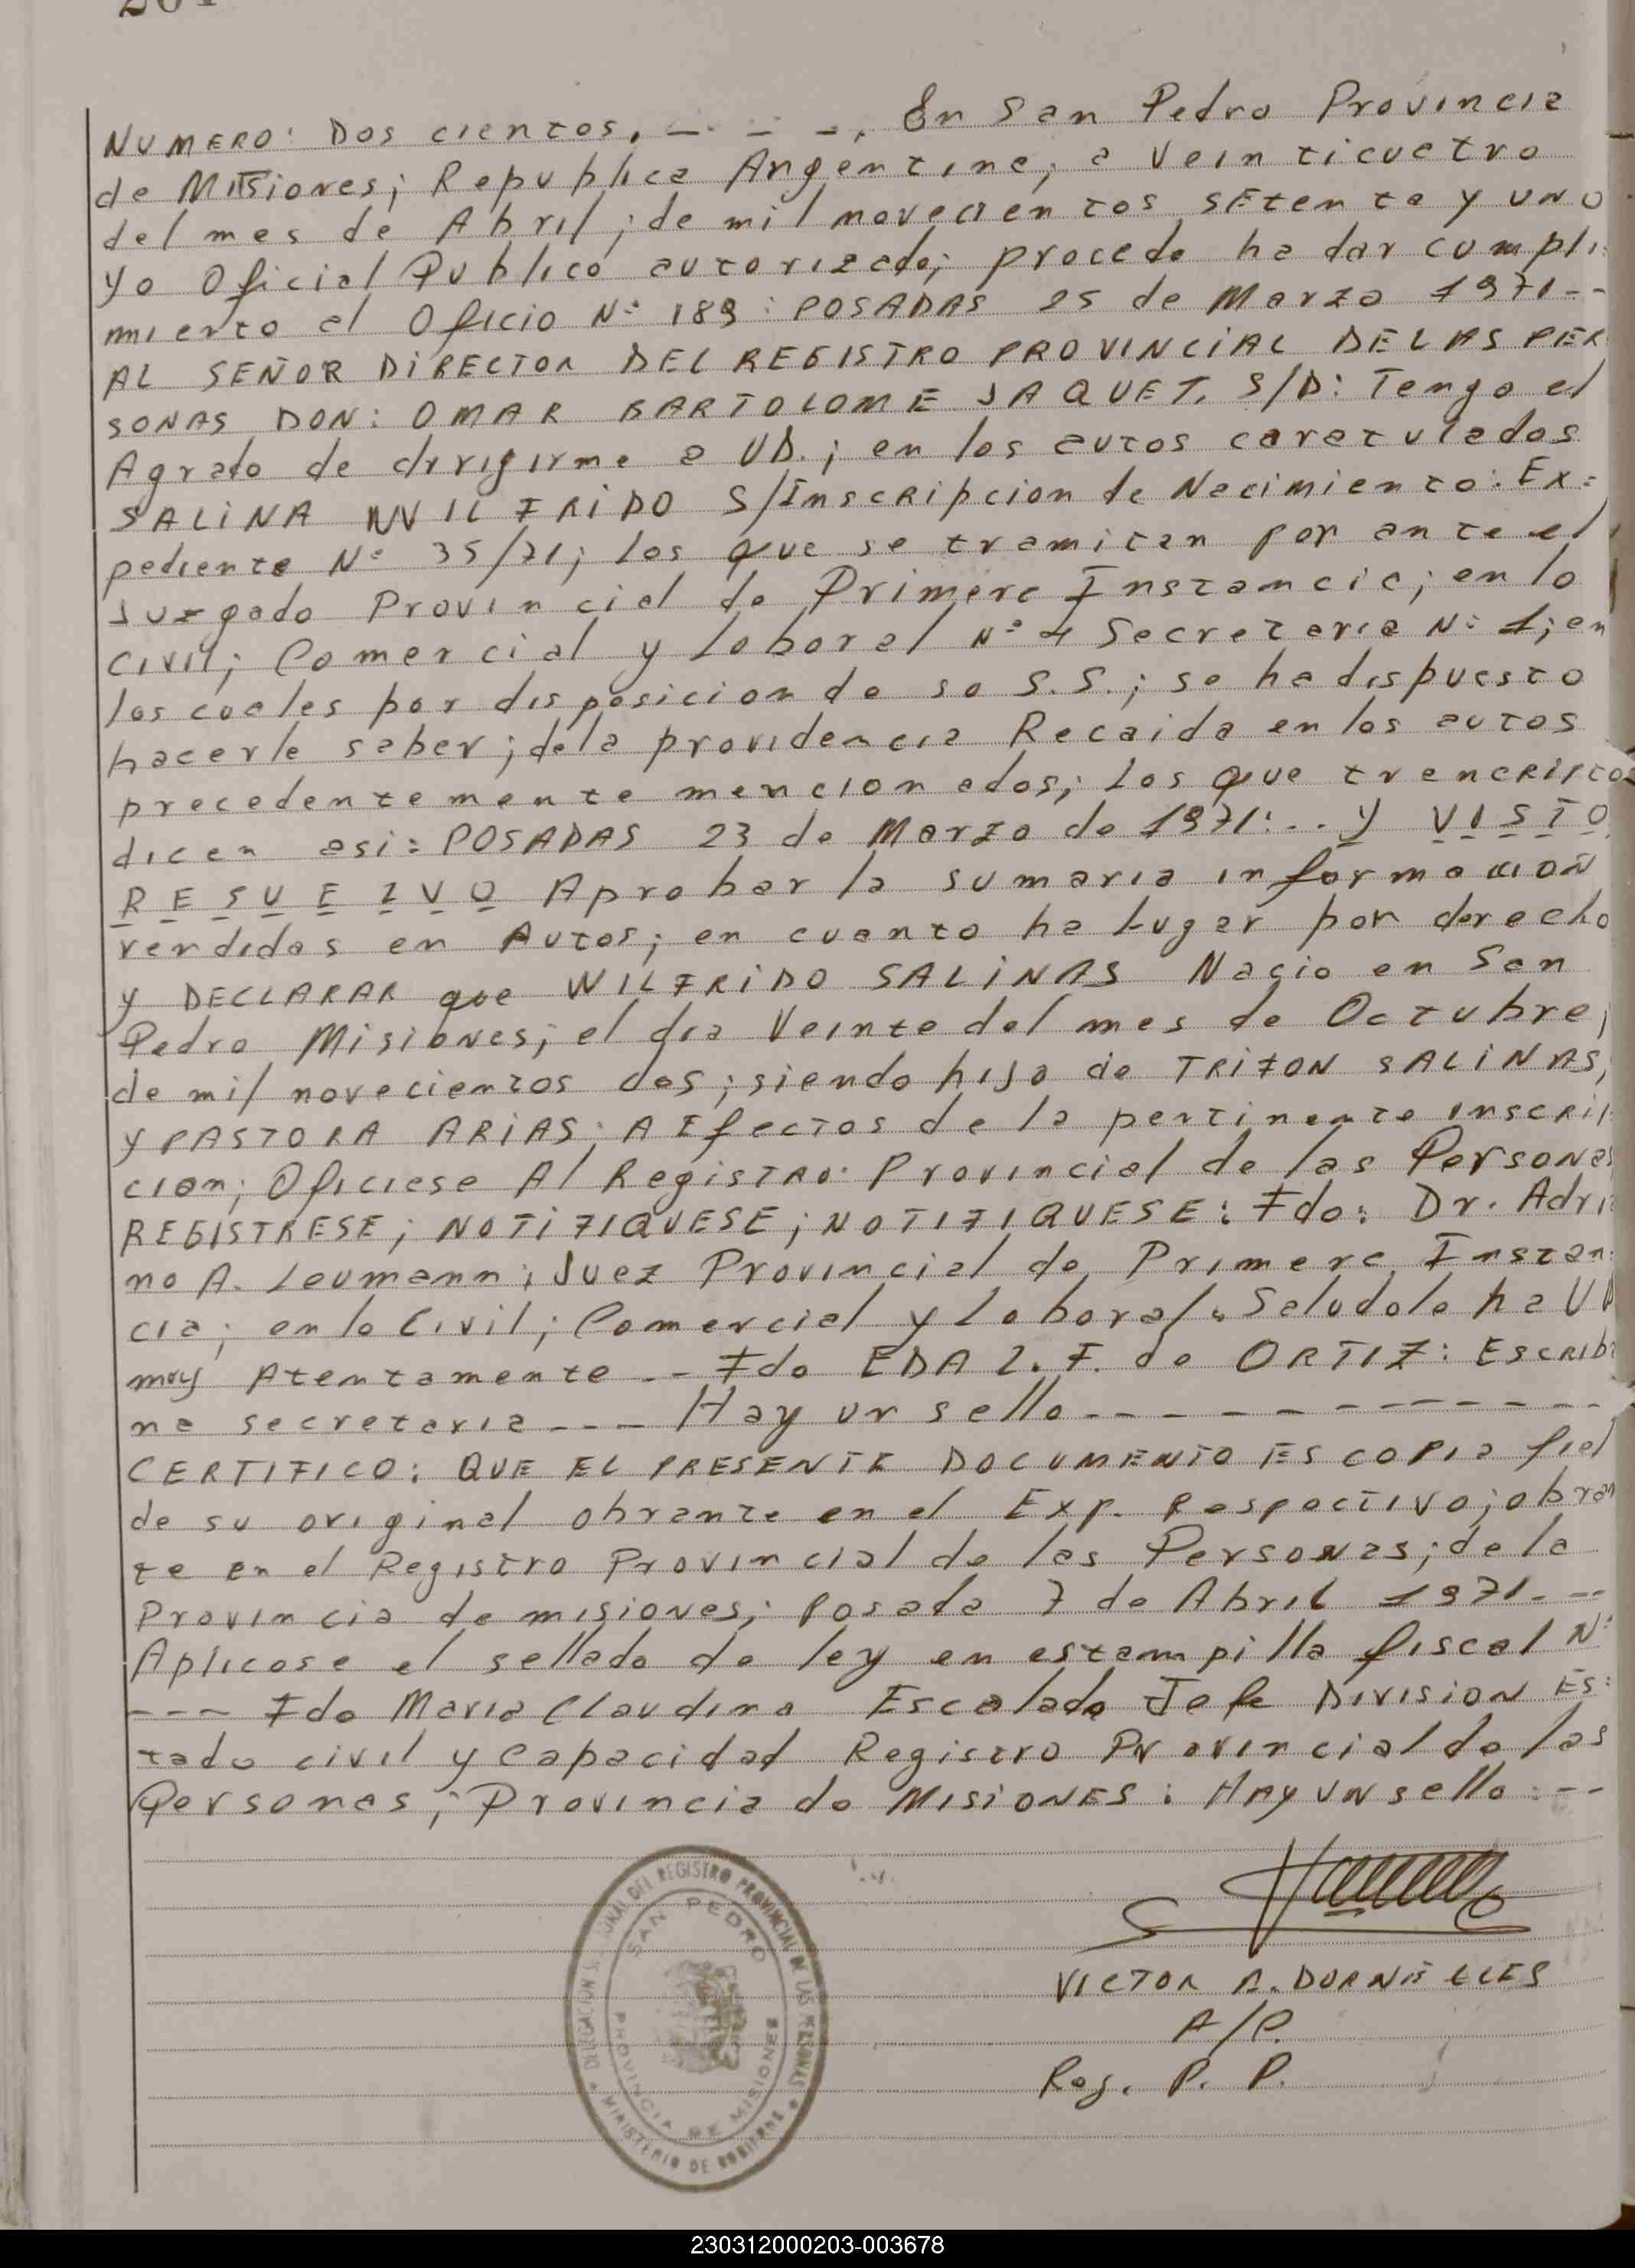 NUMERO: Dos cientos. — - -. En San Pedro Provincia
de Misiones; Republica Argentina; a Veinticuatro
del mes de Abril; de mil novecientos setenta y uno
yo Oficial Publico autorizado; procedo ha dar cumpli
miento al Oficio Nº 189: POSADAS 25 de Marzo 1971--
AL SEÑOR DIRECTOR DEL REGISTRO PROVINCIAL DE LAS PER
SONAS DON: OMAR BARTOLOME JAQUET, S/D: Tengo el
Agrado de dirigirme a UD.; en los autos caratulados
SALINA WILFRIDO S/Inscripcion de Nacimiento: Ex=
pediente Nº 35/71; los que se tramitan por ante el
Juzgado Provincial de Primera Instancia; en lo
civil; Comercial y Laboral Nº 4 Secretaria Nº 1; en
los cuales por disposicion de so S.S.; se ha dispuesto
hacerle saber; de la providencia Recaida en los autos
precedentemente mencionados; los que trancriptos
dicen asi: POSADAS 23 de Marzo de 1971:.. Y VISTO
RESUELVO Aprobar la sumaria informacion
rendidas en Autos; en cuanto ha lugar por derecho
y DECLARAR que WILFRIDO SALINAS Nacio en San
Pedro Misiones; el dia Veinte del mes de Octubre;
de mil novecientos dos; siendo hijo de TRIFON SALINAS,
y PASTORA ARIAS: A Efectos de la pertinente inscrip
cion; Oficiese Al Registro: Provincial de las Personas
REGISTRESE; NOTIFIQUESE; NOTIFIQUESE: Fdo: Dr. Adria
no A. Leumann; Juez Provincial de Primera Instan
cia; en lo Civil; Comercial y Laboral. Saludolo ha UD
muy Atentamente -- Fdo EDA L. F. de ORTIZ: Escriba
na secretaria --- Hay un sello ------------
CERTIFICO: QUE EL PRESENTE DOCUMENTO ES COPIA fiel
de su original obrante en el Exp. Respectivo; obran
te en el Registro Provincial de las Personas; de la
Provincia de misiones; Posada 7 de Abril 1971.--
Aplicose el sellado de ley en estampilla fiscal Nº
--- Fdo Maria Claudina Escalada Jefe DIVISION ES:
tado civil y Capacidad Registro Provincial de las
Personas; Provincia de MISIONES: HAY UN sello:--
DELEGACION SECCIONAL DEL REGISTRO PROVINCIAL DE LAS PERSONAS
SAN PEDRO
PROVINCIA DE MISIONES
MINISTERIO DE GOBIERNO
VICTOR A. DORNELLES
A/C.
Reg. P. P.
230312000203-003678